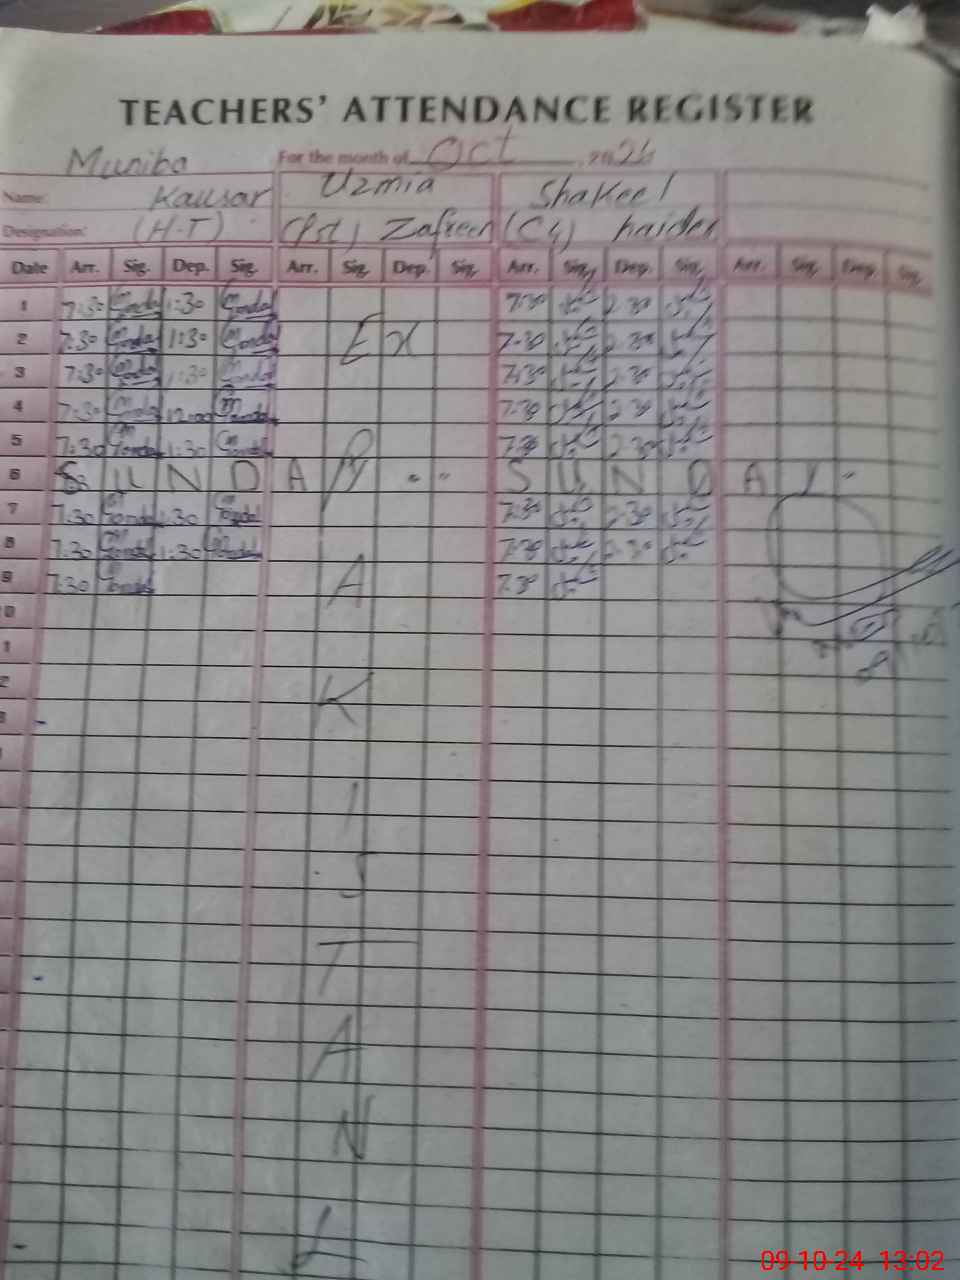 TEACHERS' ATTENDANCE REGISTER
For the month of Oct, 2024
Name: Muniba Kausar Uzmia Shakeel
Designation: (H-T) (Pst) Zafreen (C4) haider
Date Arr. Sig. Dep. Sig. Arr. Sig. Dep. Sig. Arr. Sig. Dep. Sig. Arr. Sig. Dep. Sig.
1 7:30 1:30 7:30 2:30
2 7:30 1:30 Ex 7:30 2:30
3 7:30 1:30 7:30 2:30
4 7:30 12:00 7:30 2:30
5 7:30 1:30 P 7:30 2:30
6 SUNDAY " SUNDAY "
7 7:30 1:30 7:30 2:30
8 7:30 1:30 7:30 2:30
9 7:30 A 7:30
0
1
2 K
3
I
S
T
A
N
L
09-10-24 13:02